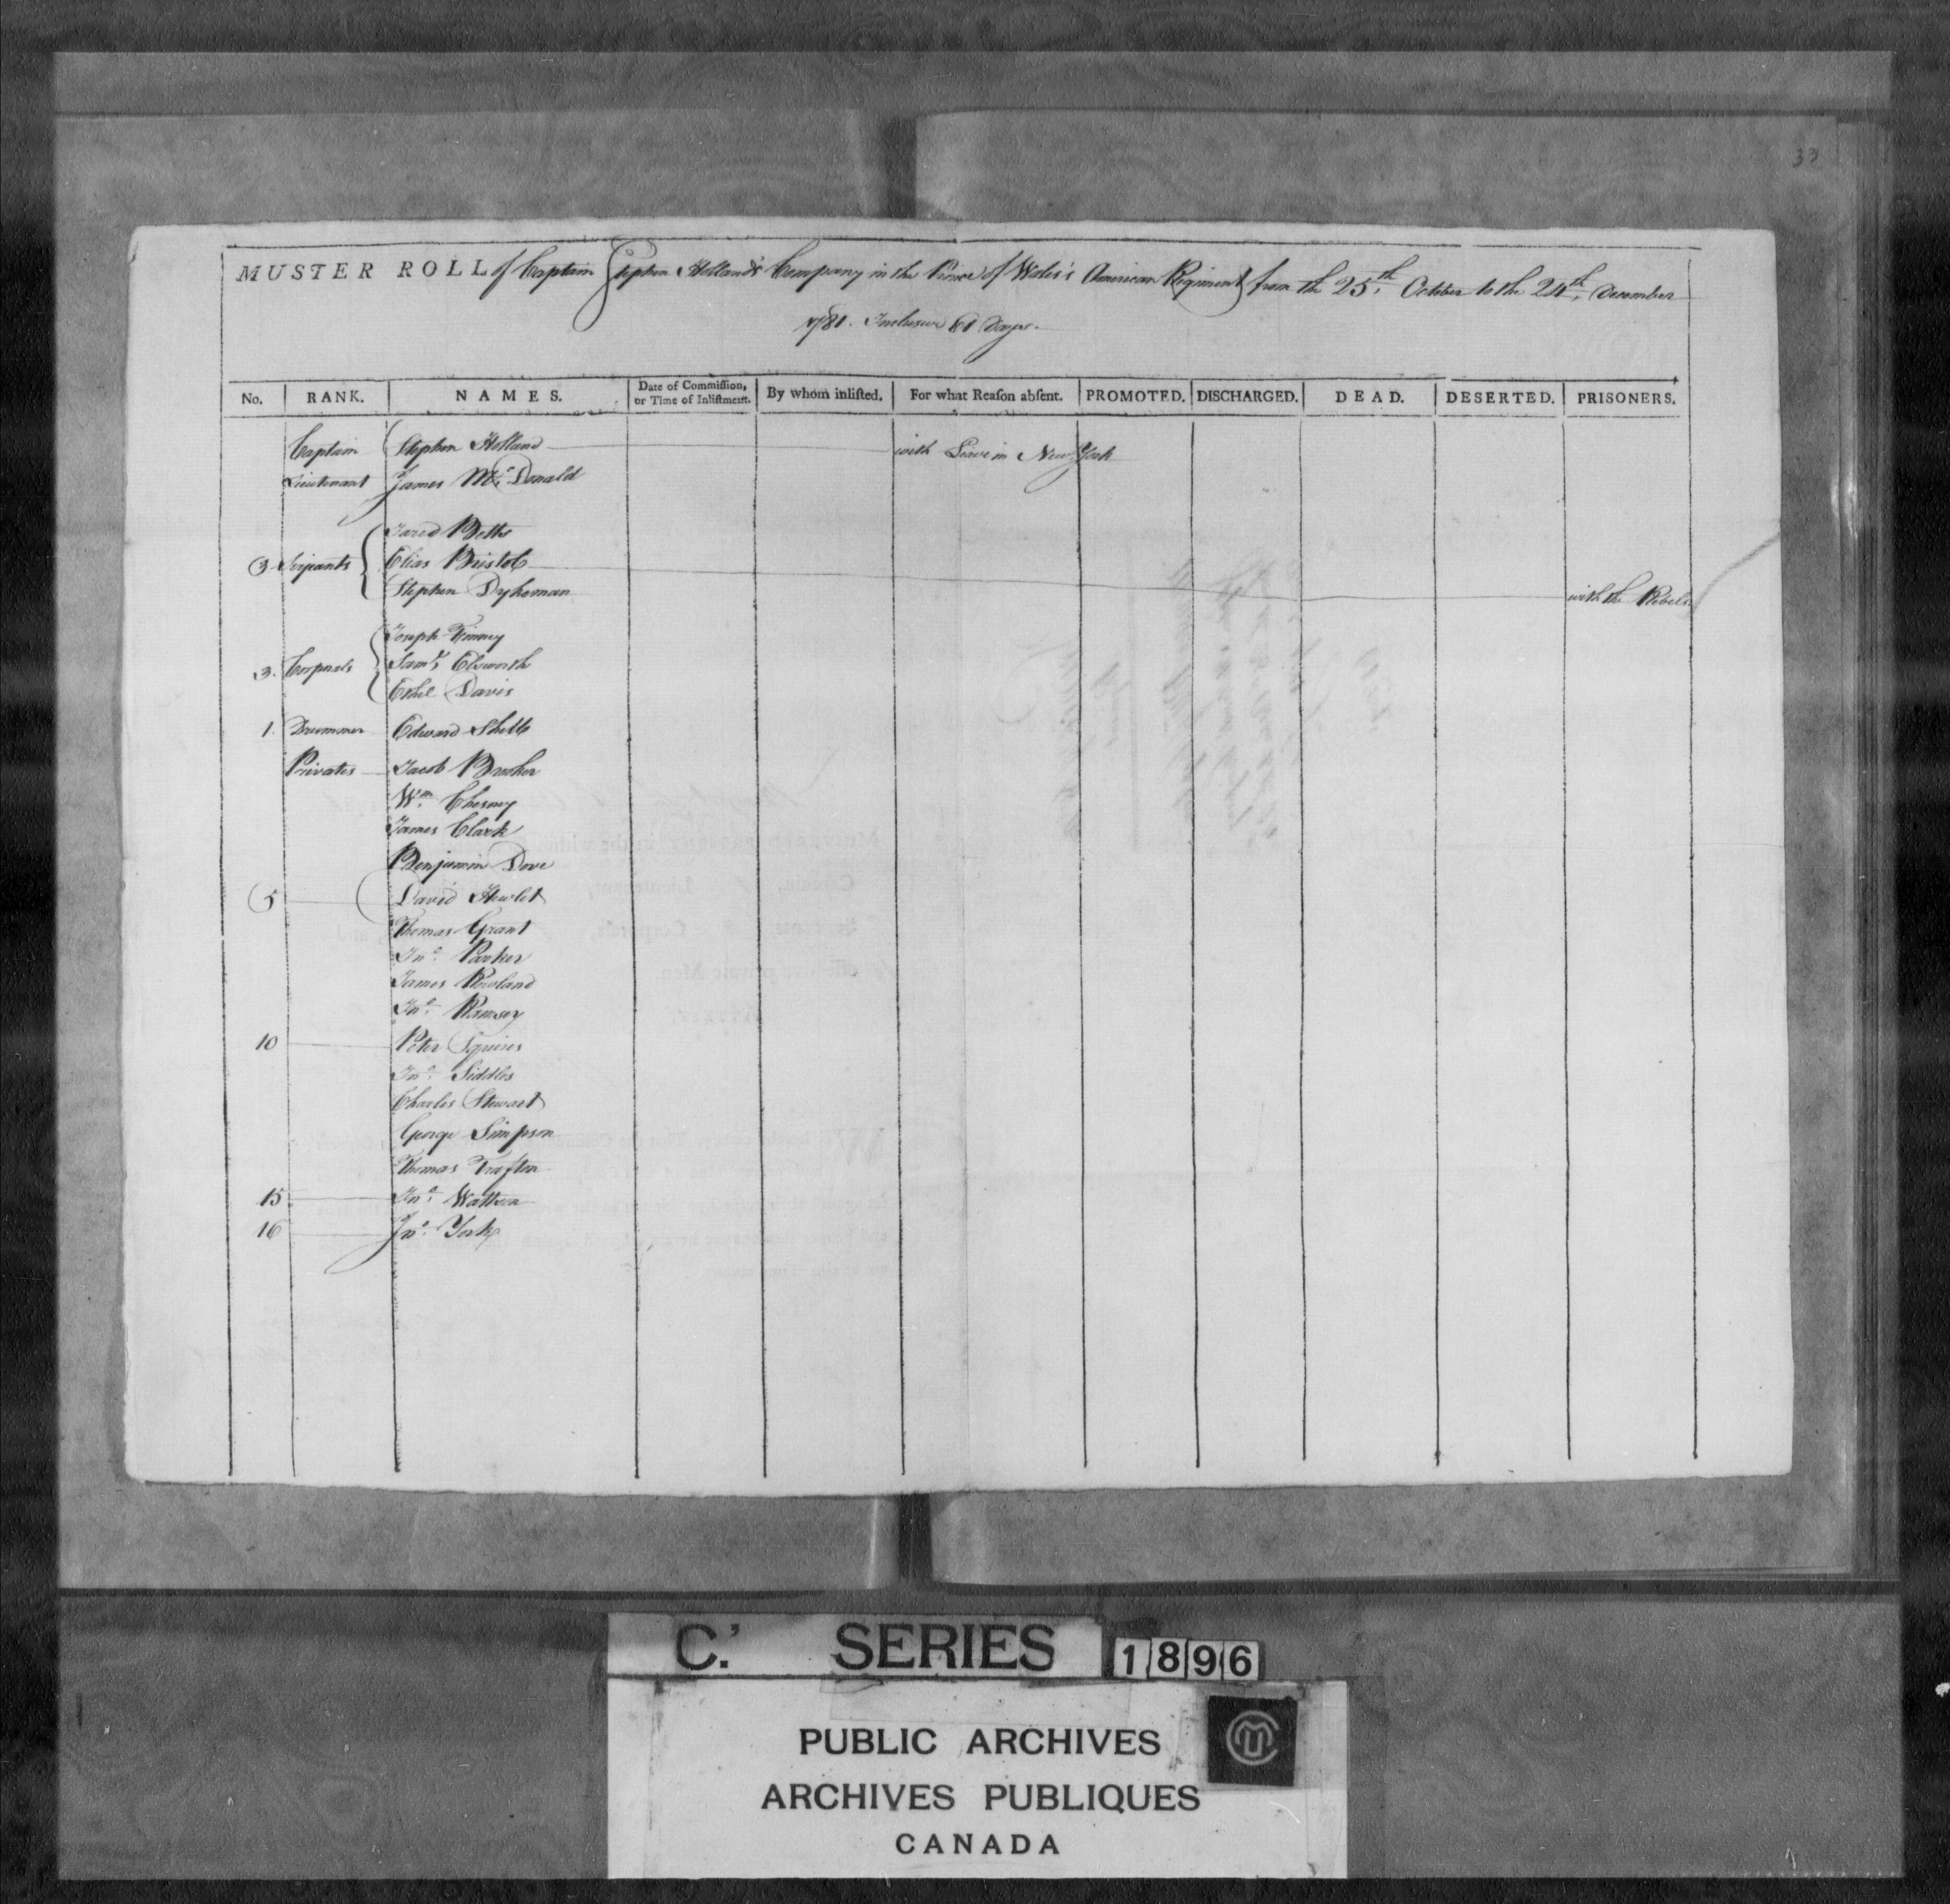 33
MUSTER ROLL of Captain Stephen Holland's Company in the Prince of Wales's American Regiment from the 25th. October to the 24th. December
1781. Inclusive 61 Days.
No. RANK. NAMES. Date of Commiſſion, or Time of Inliſtment. By whom inliſted. For what Reaſon abſent. PROMOTED. DISCHARGED. DEAD. DESERTED. PRISONERS.
Captain Stephen Holland with Leave in New York
Lieutenant James Mc. Donald
Jared Betts
3 Serjeants Elias Bristol with the Rebels
Stephen Dykeman
Joseph Finney
3. Corporals Saml. Elsworth
Ethel Davis
1. Drummer Edward Shell
Privates Jacob Brooker
Wm. Chesney
James Clark
Benjamin Dove
5 David Hewlet
Thomas Grant
Jno. Parker
James Rowland
Jno. Ramsey
10 Peter Squires
Jno. Siddles
Charles Stewart
George Simpson
Thomas Trafton
15 Jno. Watson
16 Jno. York
C. SERIES 1896
PUBLIC ARCHIVES
ARCHIVES PUBLIQUES
CANADA